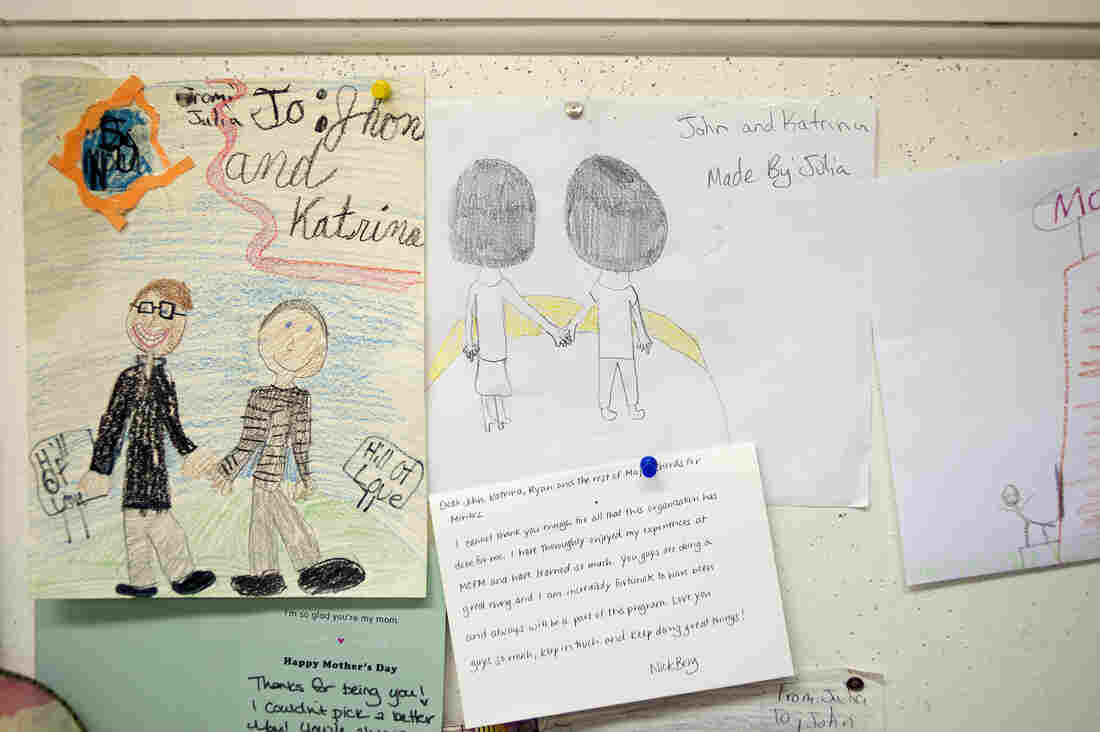 From:
Julia
To: Jhon
and
Katrina
Hill
Of
Love
Hill Of
Love
John and Katrina
Made By Julia
Dear John, Katrina, Ryan and the rest of Maj Chords for
Minors
I cannot thank you enough for all that this organization has
done for me. I have thoroughly enjoyed my experiences at
MCFM and have learned so much. You guys are doing a
great thing and I am incredibly fortunate to have been
and always will be a part of this program. Love you
guys so much, keep in touch and keep doing great things!
Nick Berg
I'm so glad you're my mom.
Happy Mother's Day
Thanks for being you!
I couldn't pick a better
From: Julia
To, John